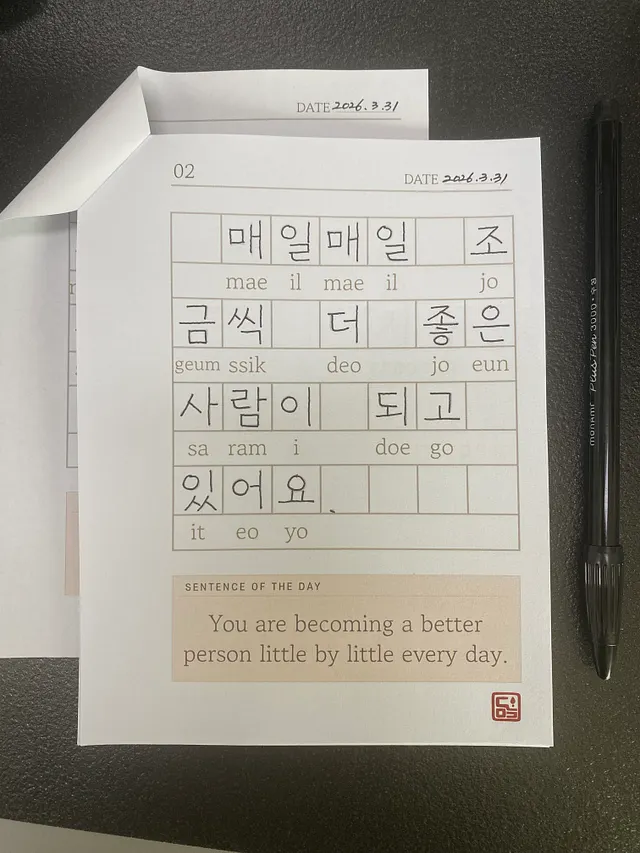 DATE 2026.3.31
02
DATE 2026.3.31
매일매일 조
mae il mae il jo
금씩 더 좋은
geum ssik deo jo eun
사람이 되고
sa ram i doe go
있어요.
it eo yo
SENTENCE OF THE DAY
You are becoming a better
person little by little every day.
monami Plus Pen 3000